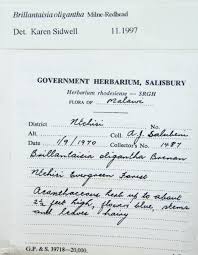 Brillantaisia oligantha Milne-Redhead
Det. Karen Sidwell 11.1997
GOVERNMENT HERBARIUM, SALISBURY
Herbarium rhodesiense — SRGH
FLORA OF Malawi
District Ntchisi
Alt. Coll. A.J. Salubeni
Date 1/9/1970 Collector's No. 1487
Brillantaisia oligantha Brenan
Ntchisi Evergreen Forest
Acanthaceous herb up to about
2½ feet high, flower blue, stems
and leaves hairy
G.P. & S. 39718—20,000.